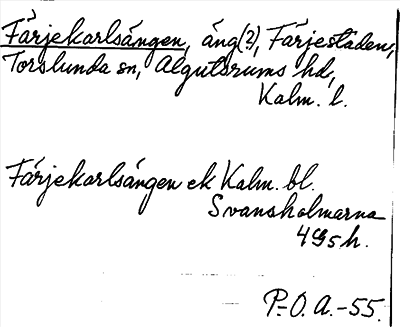 Färjekarlsängen, äng(?), Färjestaden,
Torslunda sn, Algutsrums hd,
Kalm. l.
Färjekarlsängen ek Kalm. bl.
Svansholmarna
4G5h.
P.O.A.-55.